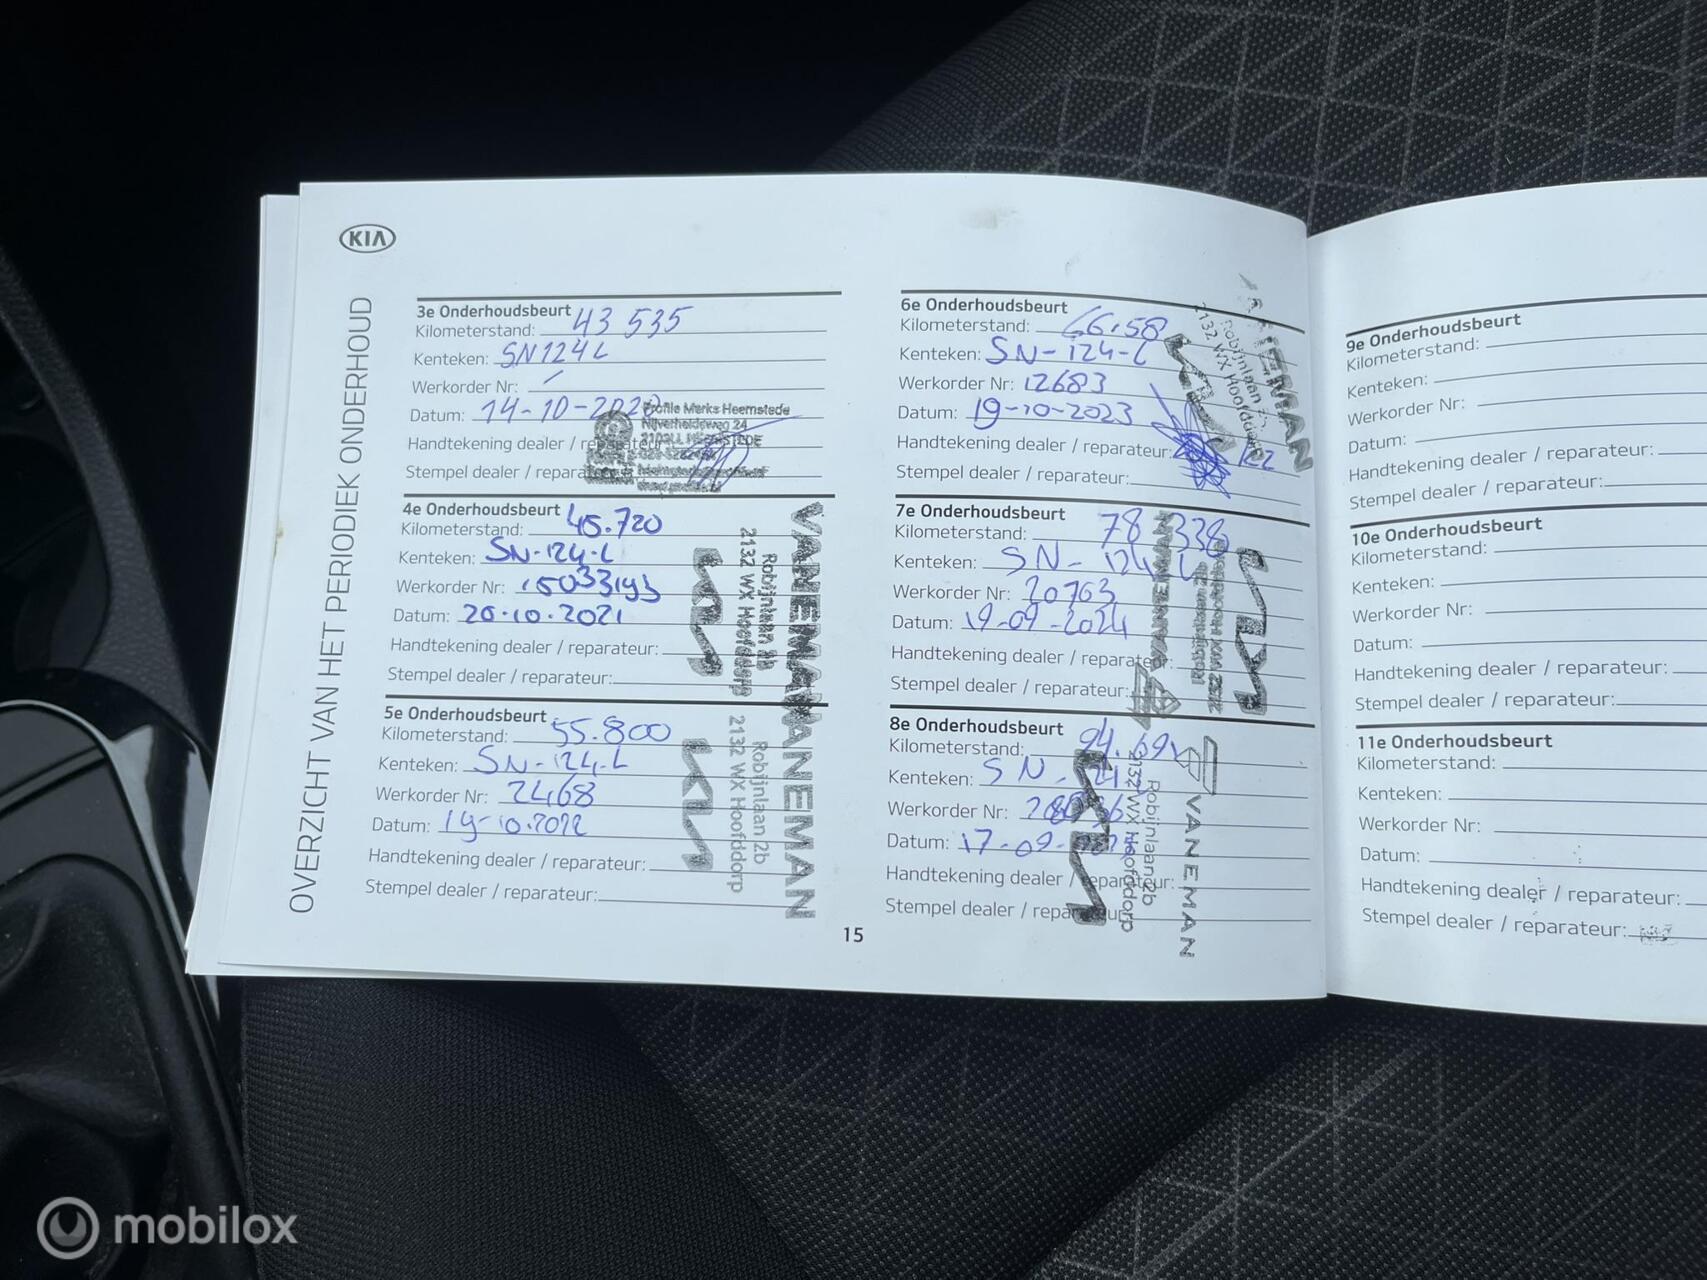 KIA
OVERZICHT VAN HET PERIODIEK ONDERHOUD
3e Onderhoudsbeurt
Kilometerstand: 43 535
Kenteken: SN124L
Werkorder Nr: /
Datum: 14-10-2020
Handtekening dealer / reparateur:
Stempel dealer / reparateur:
Profile Marks Heemstede
Nijverheidsweg 24
4e Onderhoudsbeurt
Kilometerstand: 45.720
Kenteken: SN-124-L
Werkorder Nr: 15033193
Datum: 20.10.2021
Handtekening dealer / reparateur:
Stempel dealer / reparateur:
VANEMAN
Robijnlaan 2b
2132 WX Hoofddorp
KIA
5e Onderhoudsbeurt
Kilometerstand: 55.800
Kenteken: SN-124-L
Werkorder Nr: 2468
Datum: 19-10.2022
Handtekening dealer / reparateur:
Stempel dealer / reparateur:
VANEMAN
Robijnlaan 2b
2132 WX Hoofddorp
KIA
6e Onderhoudsbeurt
Kilometerstand: 66.58
Kenteken: SN-124-L
Werkorder Nr: 12683
Datum: 19-10-2023
Handtekening dealer / reparateur:
Stempel dealer / reparateur:
Robijnlaan
2132 WX Hoofddorp
KIA
7e Onderhoudsbeurt
Kilometerstand: 78 338
Kenteken: SN-124 L
Werkorder Nr: 20763
Datum: 19-09-2024
Handtekening dealer / reparateur:
Stempel dealer / reparateur:
VANEMAN
KIA
8e Onderhoudsbeurt
Kilometerstand: 94.691
Kenteken: SN-
Werkorder Nr:
Datum: 17-09-
Handtekening dealer / reparateur:
Stempel dealer / reparateur:
VANEMAN
Robijnlaan 2b
2132 WX Hoofddorp
KIA
15
9e Onderhoudsbeurt
Kilometerstand:
Kenteken:
Werkorder Nr:
Datum:
Handtekening dealer / reparateur:
Stempel dealer / reparateur:
10e Onderhoudsbeurt
Kilometerstand:
Kenteken:
Werkorder Nr:
Datum:
Handtekening dealer / reparateur:
Stempel dealer / reparateur:
11e Onderhoudsbeurt
Kilometerstand:
Kenteken:
Werkorder Nr:
Datum:
Handtekening dealer / reparateur:
Stempel dealer / reparateur:
mobilox